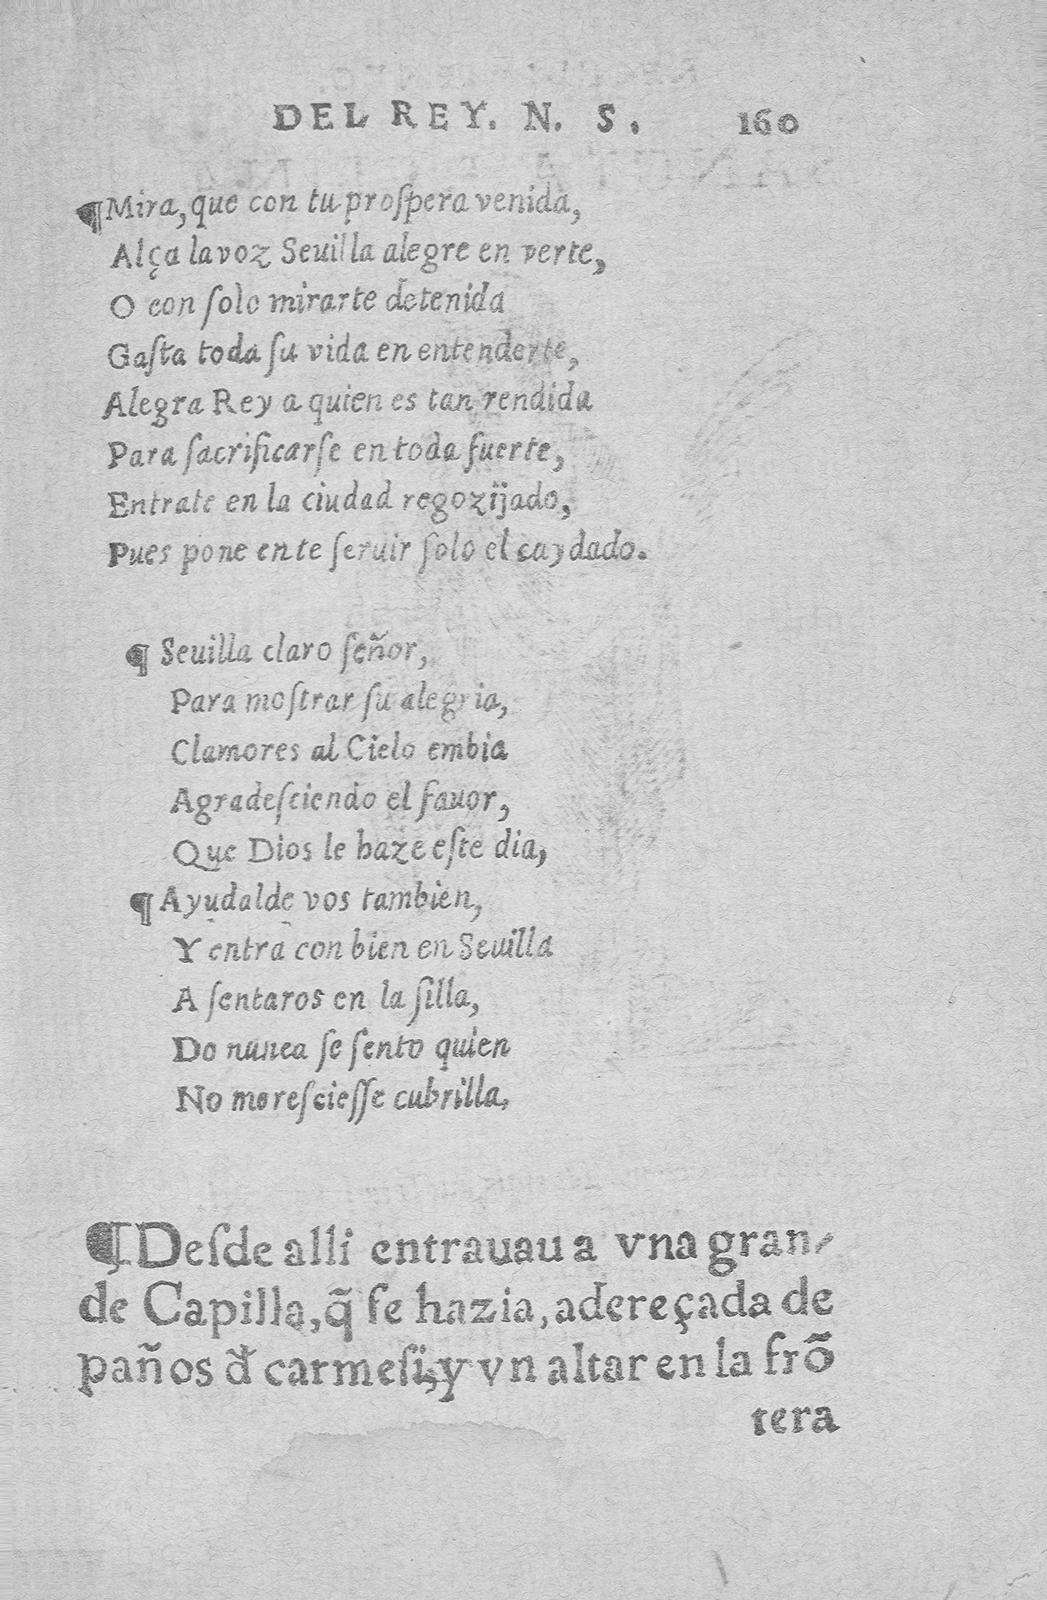 DEL REY. N. S. 160
¶Mira, que con tu proſpera venida,
Alça la voz Seuilla alegre en verte,
O con ſolo mirarte detenida
Gaſta toda ſu vida en entenderte,
Alegra Rey a quien es tan rendida
Para ſacrificarſe en toda ſuerte,
Entrate en la ciudad regozijado,
Pues pone en te ſeruir ſolo el caydado.
¶ Seuilla claro ſeñor,
Para moſtrar ſu alegria,
Clamores al Cielo embia
Agradeſciendo el fauor,
Que Dios le haze eſte dia,
¶Ayudalde vos tambien,
Y entra con bien en Seuilla
A ſentaros en la ſilla,
Do nunca ſe ſento quien
No mereſcieſſe cubrilla.
¶Deſde alli entrauau a vna gran-
de Capilla, q̃ ſe hazia, adereçada de
paños đ carmeſi, y vn altar en la frõ
tera